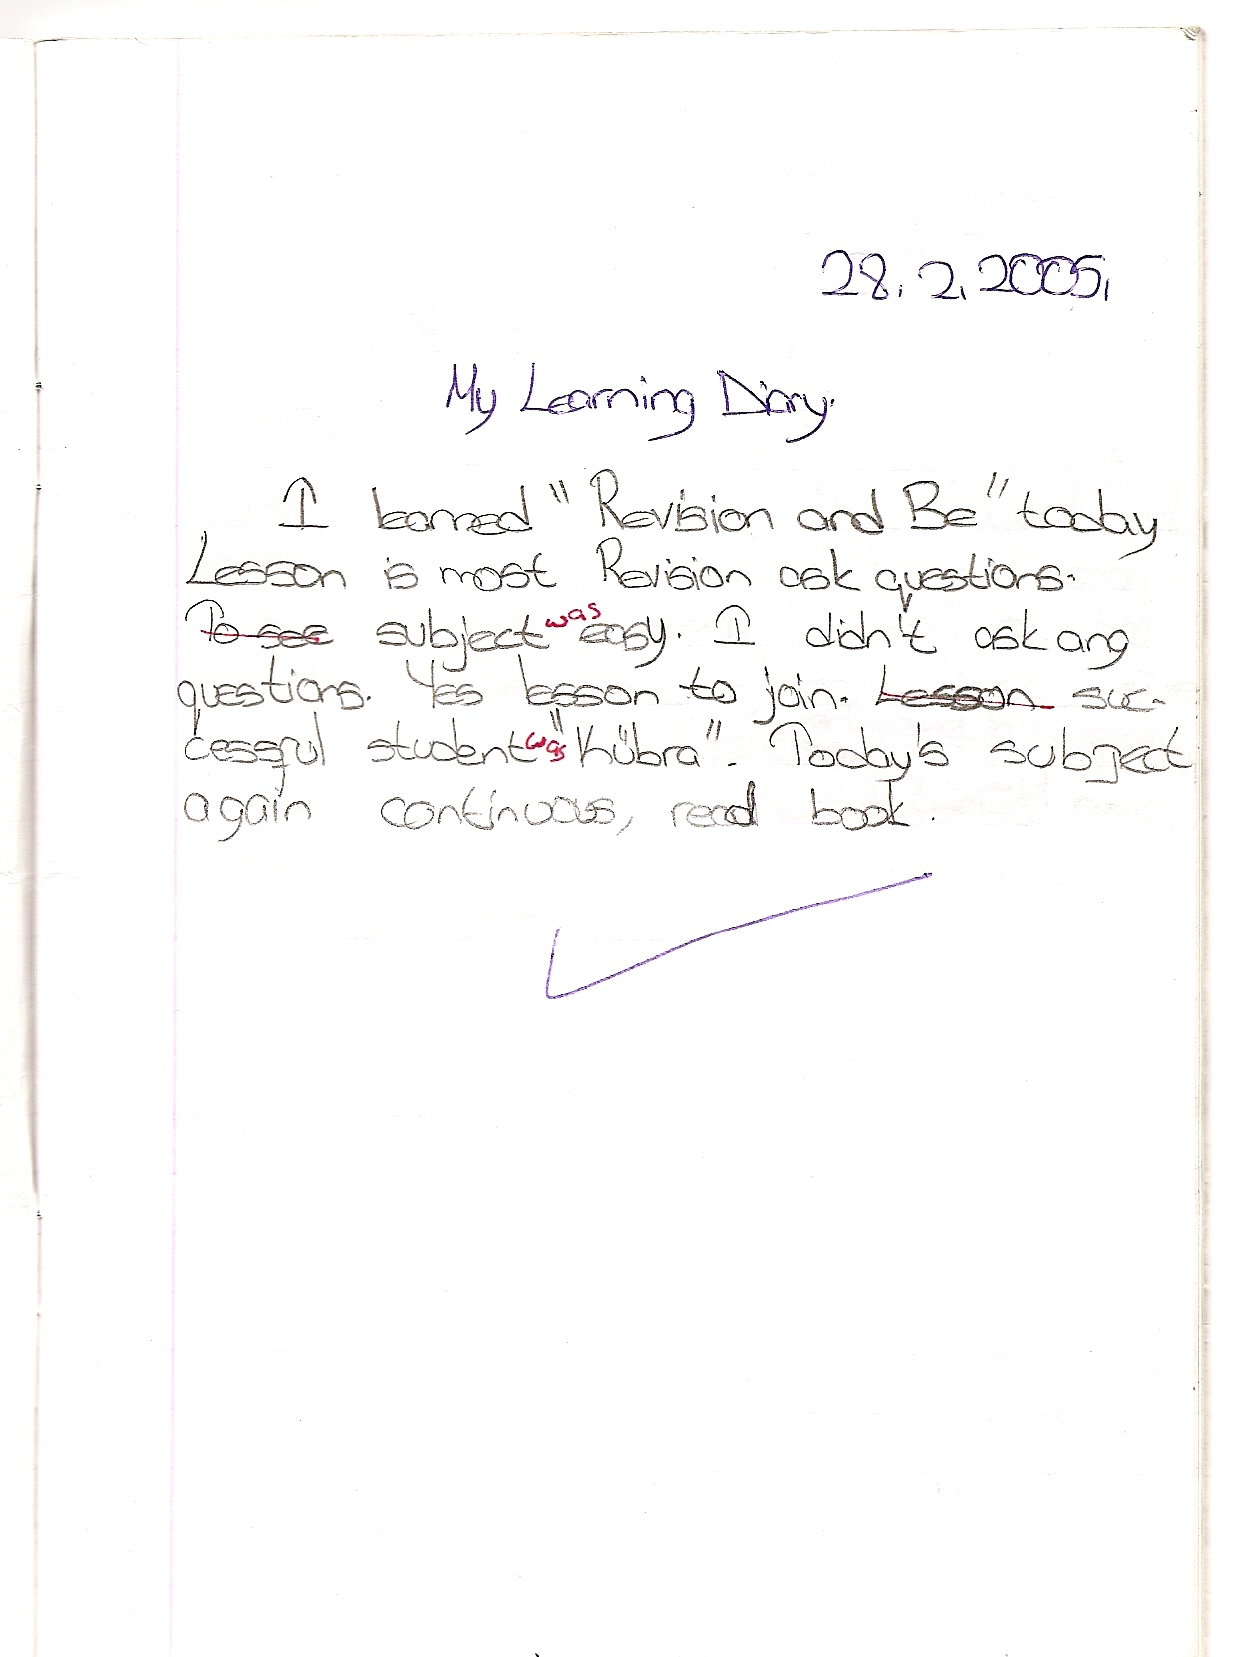 28.2.2005.
My Learning Diary.
I learned "Revision and Be" today
Lesson is most Revision ask questions.
To see subject was easy. I didn't ask any
questions. Yes lesson to join. Lesson suc-
cessful student was "Kübra". Today's subject
again continuous, read book.